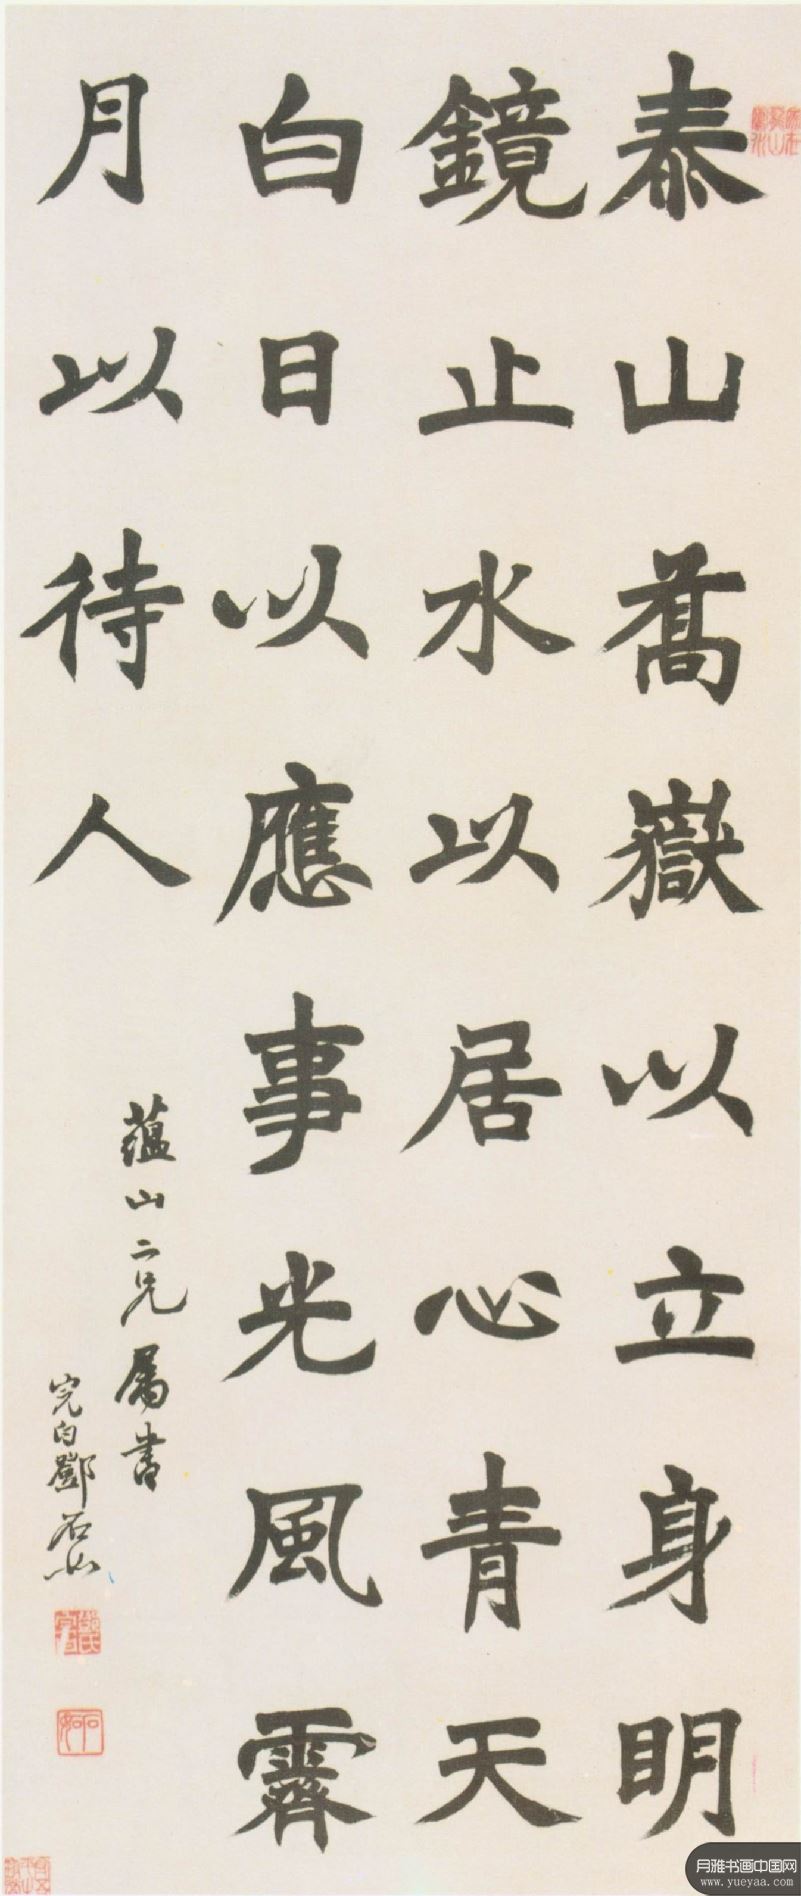 泰山喬嶽以立身明
鏡止水以居心青天
白日以應事光風霽
月以待人
蘊山二兄屬書
完白鄧石如
鄧氏完白
石如
月雅书画中国网
www.yueyaa.com